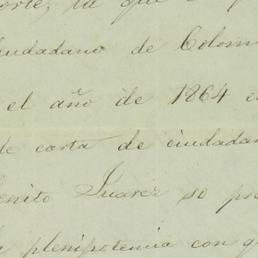 la que
ciudadano de Colom
el año de 1864
de carta de ciudadan
Benito Juarez se pr
la plenipotencia con q